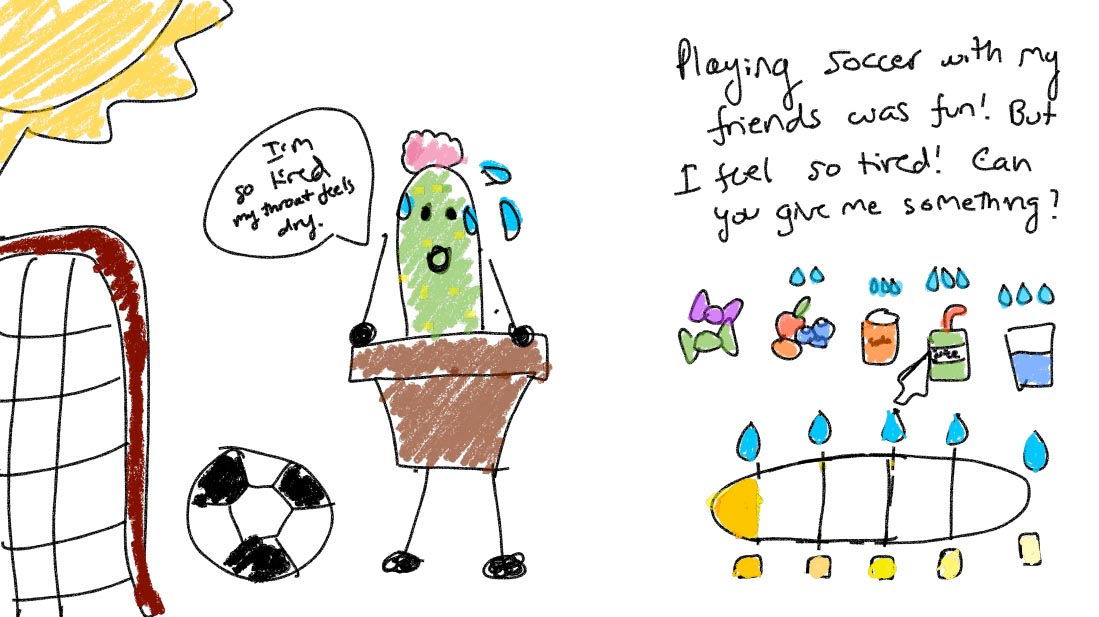 I'm
so tired
my throat feels
dry.
Playing soccer with my
friends was fun! But
I feel so tired! Can
you give me something?
Soda
juice